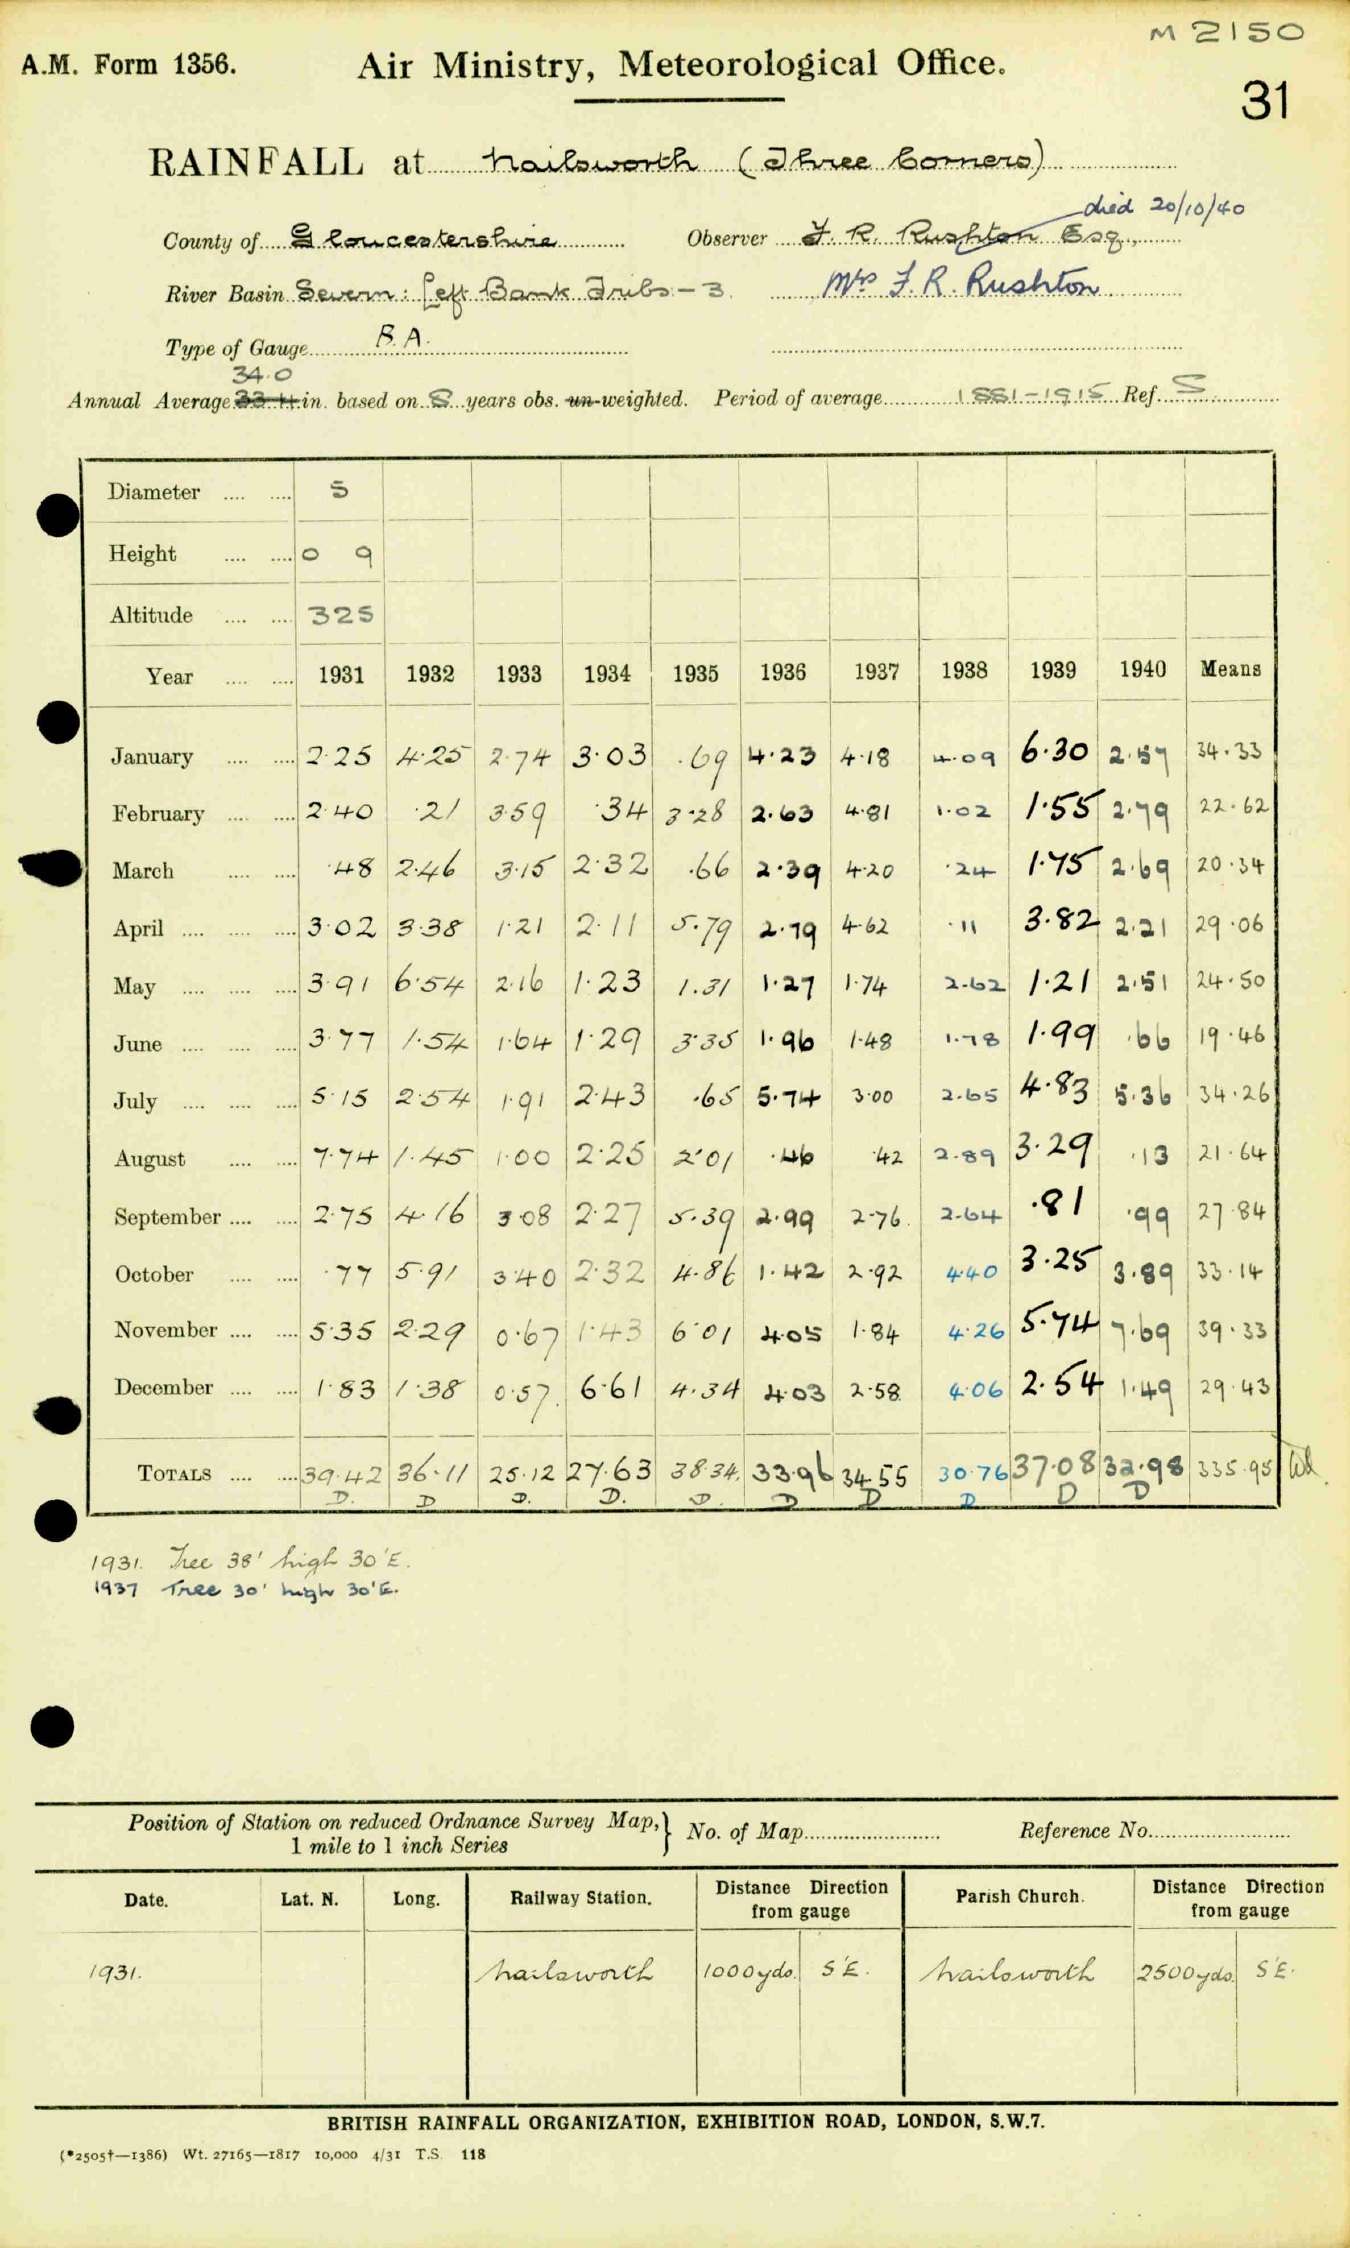 M 2150
A.M. Form 1356.
Air Ministry, Meteorological Office.
31
RAINFALL at Nailsworth (Three Corners)
died 20/10/40
County of Gloucestershire Observer F. R. Rushton Esq.,
River Basin Severn: Left Bank Tribs - 3. Mrs F. R. Rushton
Type of Gauge B.A.
34.0
Annual Average 33.4 in. based on 8 years obs. un-weighted. Period of average 1881-1915 Ref. S
Diameter 5
Height 0 9
Altitude 325
Year 1931 1932 1933 1934 1935 1936 1937 1938 1939 1940 Means
January 2.25 4.25 2.74 3.03 .69 4.23 4.18 4.09 6.30 2.57 34.33
February 2.40 .21 3.59 .34 3.28 2.63 4.81 1.02 1.55 2.79 22.62
March .48 2.46 3.15 2.32 .66 2.39 4.20 .24 1.75 2.69 20.34
April 3.02 3.38 1.21 2.11 5.79 2.79 4.62 .11 3.82 2.21 29.06
May 3.91 6.54 2.16 1.23 1.31 1.27 1.74 2.62 1.21 2.51 24.50
June 3.77 1.54 1.64 1.29 3.35 1.96 1.48 1.78 1.99 .66 19.46
July 5.15 2.54 1.91 2.43 .65 5.74 3.00 2.65 4.83 5.36 34.26
August 7.74 1.45 1.00 2.25 2.01 .46 .42 2.89 3.29 .13 21.64
September 2.75 4.16 3.08 2.27 5.39 2.99 2.76 2.64 .81 .99 27.84
October .77 5.91 3.40 2.32 4.86 1.42 2.92 4.40 3.25 3.89 33.14
November 5.35 2.29 0.67 1.43 6.01 4.05 1.84 4.26 5.74 7.69 39.33
December 1.83 1.38 0.57 6.61 4.34 4.03 2.58 4.06 2.54 1.49 29.43
TOTALS 39.42 36.11 25.12 27.63 38.34 33.96 34.55 30.76 37.08 32.98 335.95
D. D D. D. D. D D D D D
1931. Tree 38' high 30'E.
1937 Tree 30' high 30'E.
Position of Station on reduced Ordnance Survey Map, 1 mile to 1 inch Series } No. of Map Reference No.
Date. Lat. N. Long. Railway Station. Distance Direction from gauge Parish Church. Distance Direction from gauge
1931. Nailsworth 1000yds. S'E. Nailsworth 2500yds. S'E.
BRITISH RAINFALL ORGANIZATION, EXHIBITION ROAD, LONDON, S.W.7.
(*2505†—1386) Wt. 27165—1817 10,000 4/31 T.S. 118